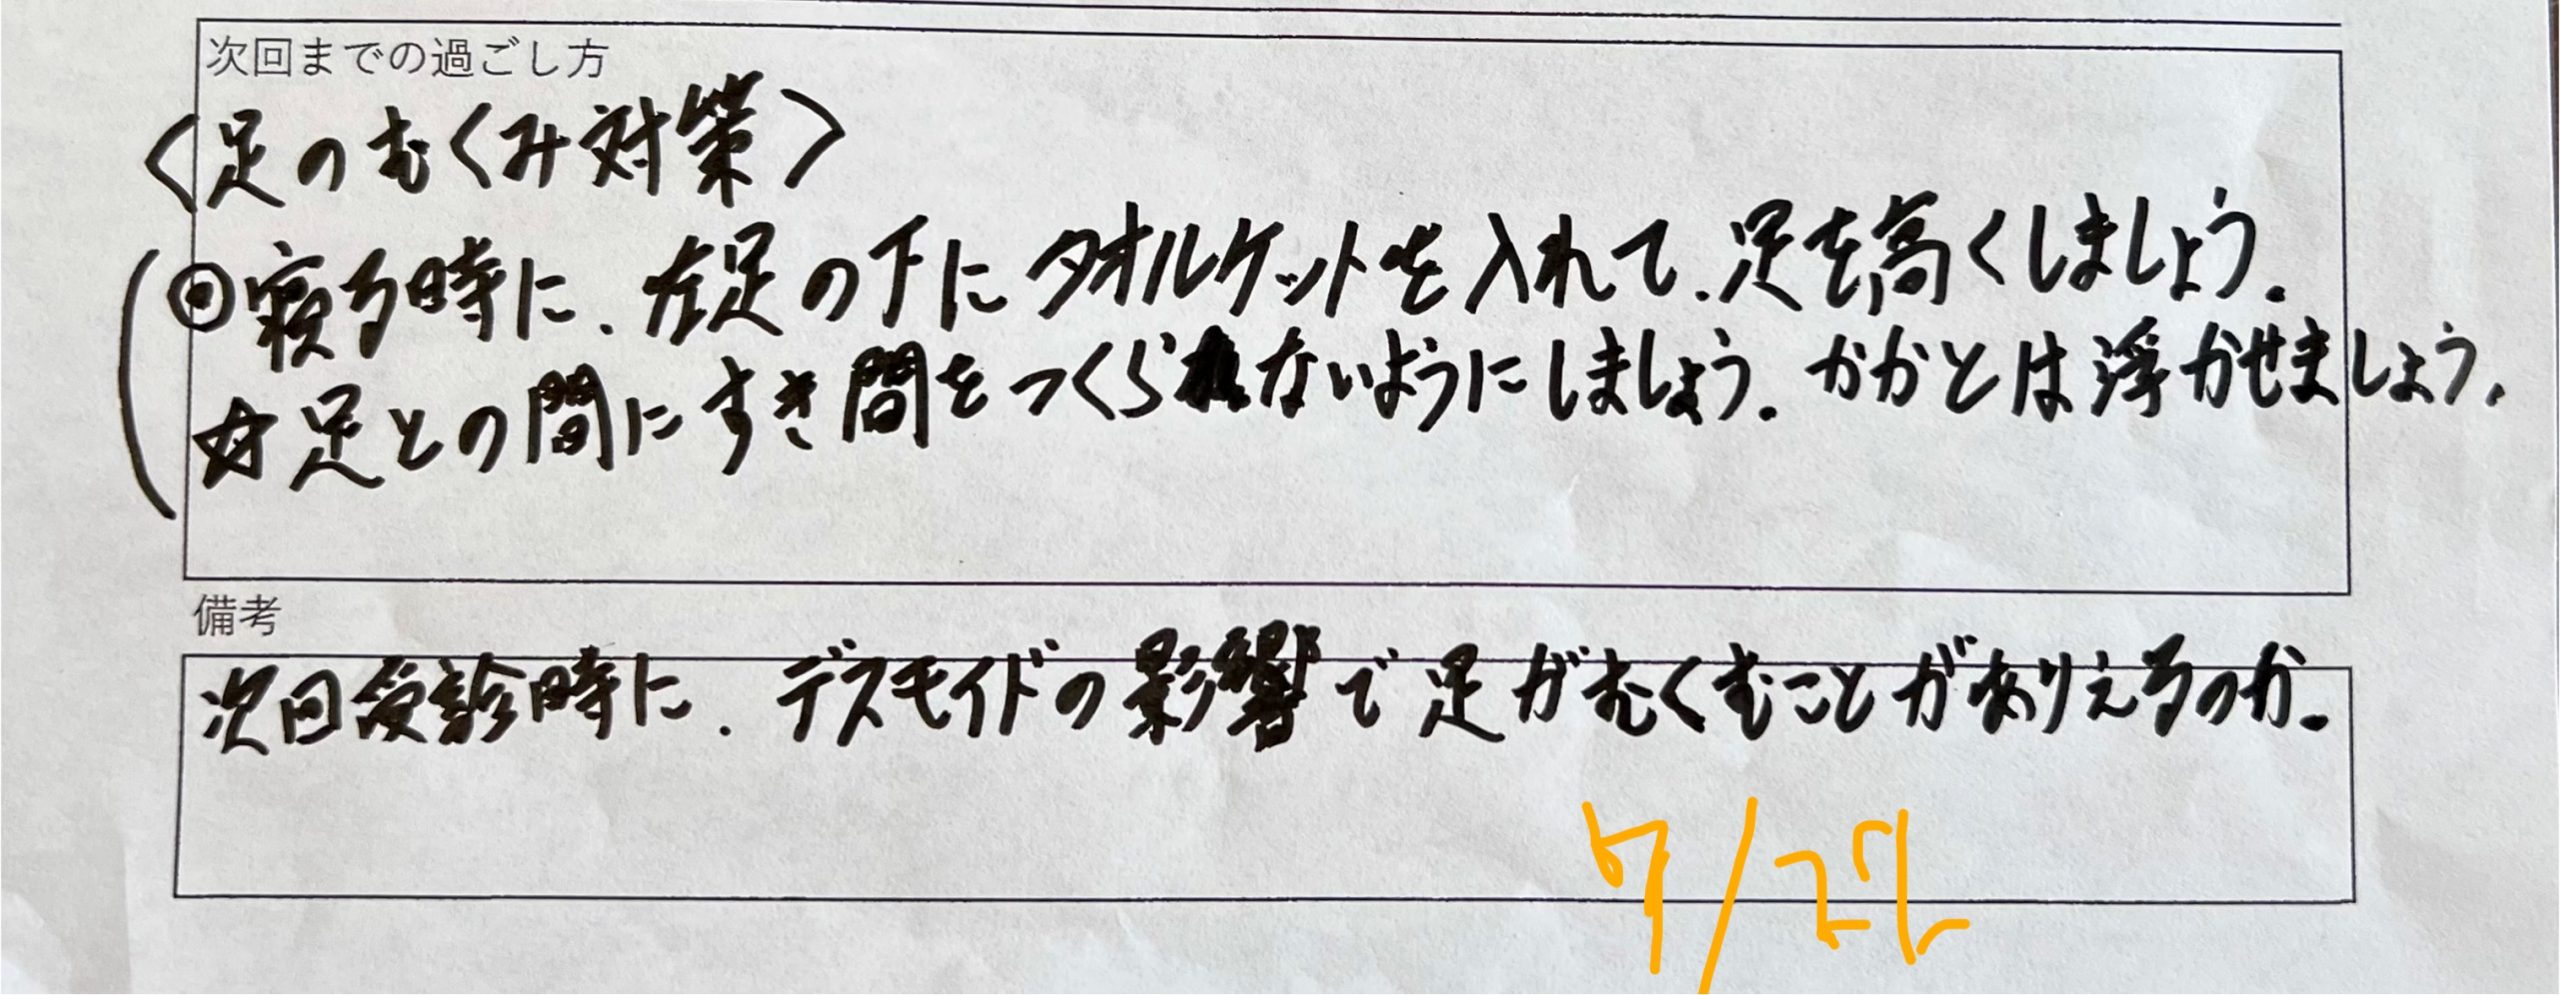 次回までの過ごし方
〈足のむくみ対策〉
寝る時に、左足の下にタオルケットを入れて、足を高くしましょう。
足との間にすき間をつくらないようにしましょう。かかとは浮かせましょう。
備考
次回受診時に、デスモイドの影響で足がむくむことがありえるのか。
7/22